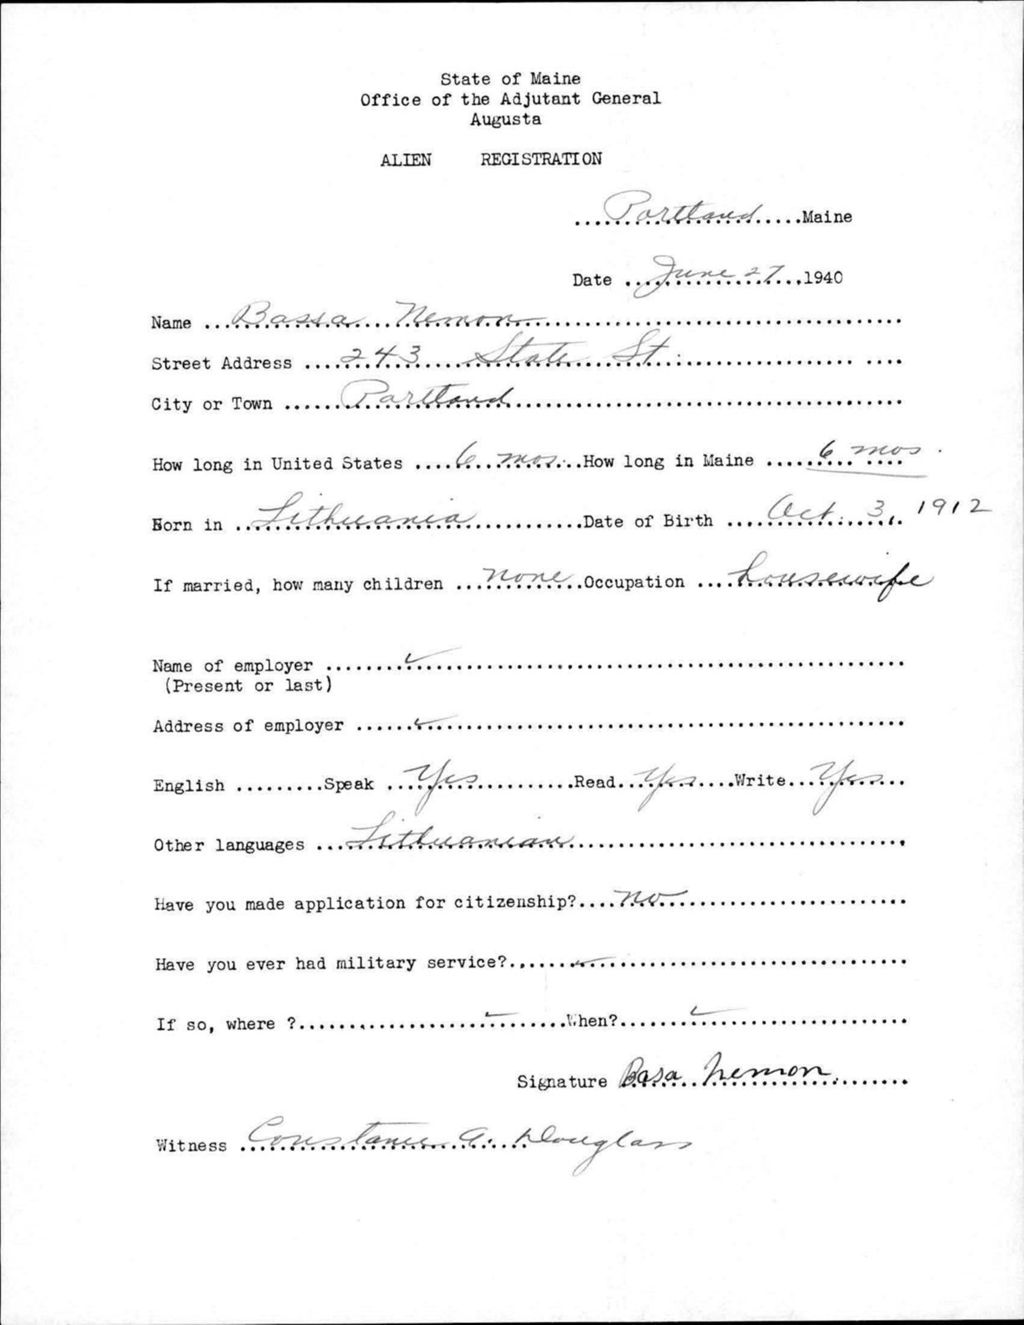 State of Maine
Office of the Adjutant General
Augusta
ALIEN REGISTRATION
....Portland.....Maine
Date ...June 27...1940
Name ...Bassa....Nemon...
Street Address ....243....State St....
City or Town ......Portland...
How long in United States ....6..mos...How long in Maine .....6 mos.
Born in ..Lithuania...Date of Birth ....Oct. 3, 1912
If married, how many children ...none...Occupation ....housewife
Name of employer ........✓...
(Present or last)
Address of employer ......✓...
English .........Speak ...Yes...Read...Yes....Write...Yes...
Other languages ...Lithuanian...
Have you made application for citizenship?....no...
Have you ever had military service?......✓...
If so, where ?......✓......When?......✓...
Signature Basa Nemon
Witness Constance A. Douglass